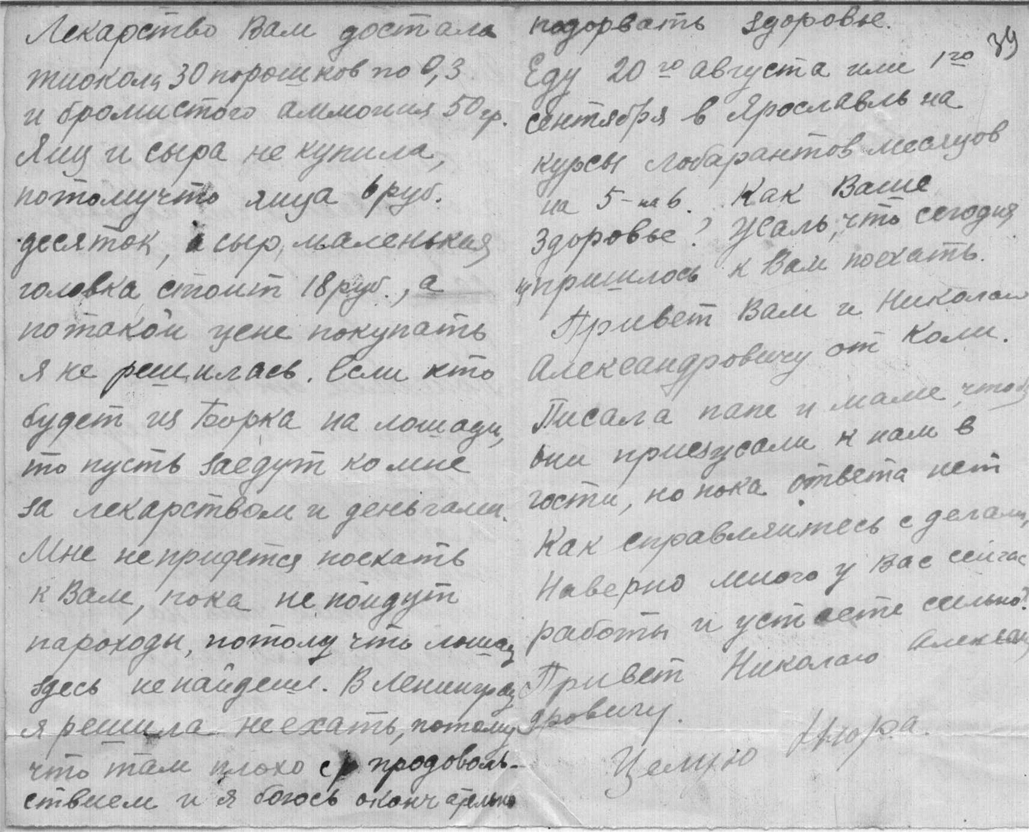 Лекарство Вам достала
тиокола 30 порошков по 0,3
и бромистого аммония 50 гр.
Яиц и сыра не купила,
потомучто яица 6 руб.
десяток, а сыр, маленькая
головка стоит 18 руб., а
по такой цене покупать
я не решилась. Если кто
будет из Борка на лошади,
то пусть заедут ко мне
за лекарством и деньгами.
Мне не придется поехать
к Вам, пока не пойдут
пароходы, потому что лошад
здесь не найдеш. В Ленинград
я решила не ехать, потому
что там плохо с продоволь-
ствием и я боюсь окончательно
39
подорвать здоровье.
Еду 20го августа или 1го
сентября в Ярославль на
курсы лобарантов месяцов
на 5-на 6. Как Ваше
здоровье? Жаль, что сегодня
пришлось к Вам поехать.
Привет Вам и Николаю
Александровичу от Коли.
Писала папе и маме, чтоб
они приезжали к нам в
гости, но пока ответа нет
Как справляйтесь с делами,
Наверно много у Вас сейчас
работы и устаете сильно?
Привет Николаю Алексан
дровичу.
Целую Нюра.